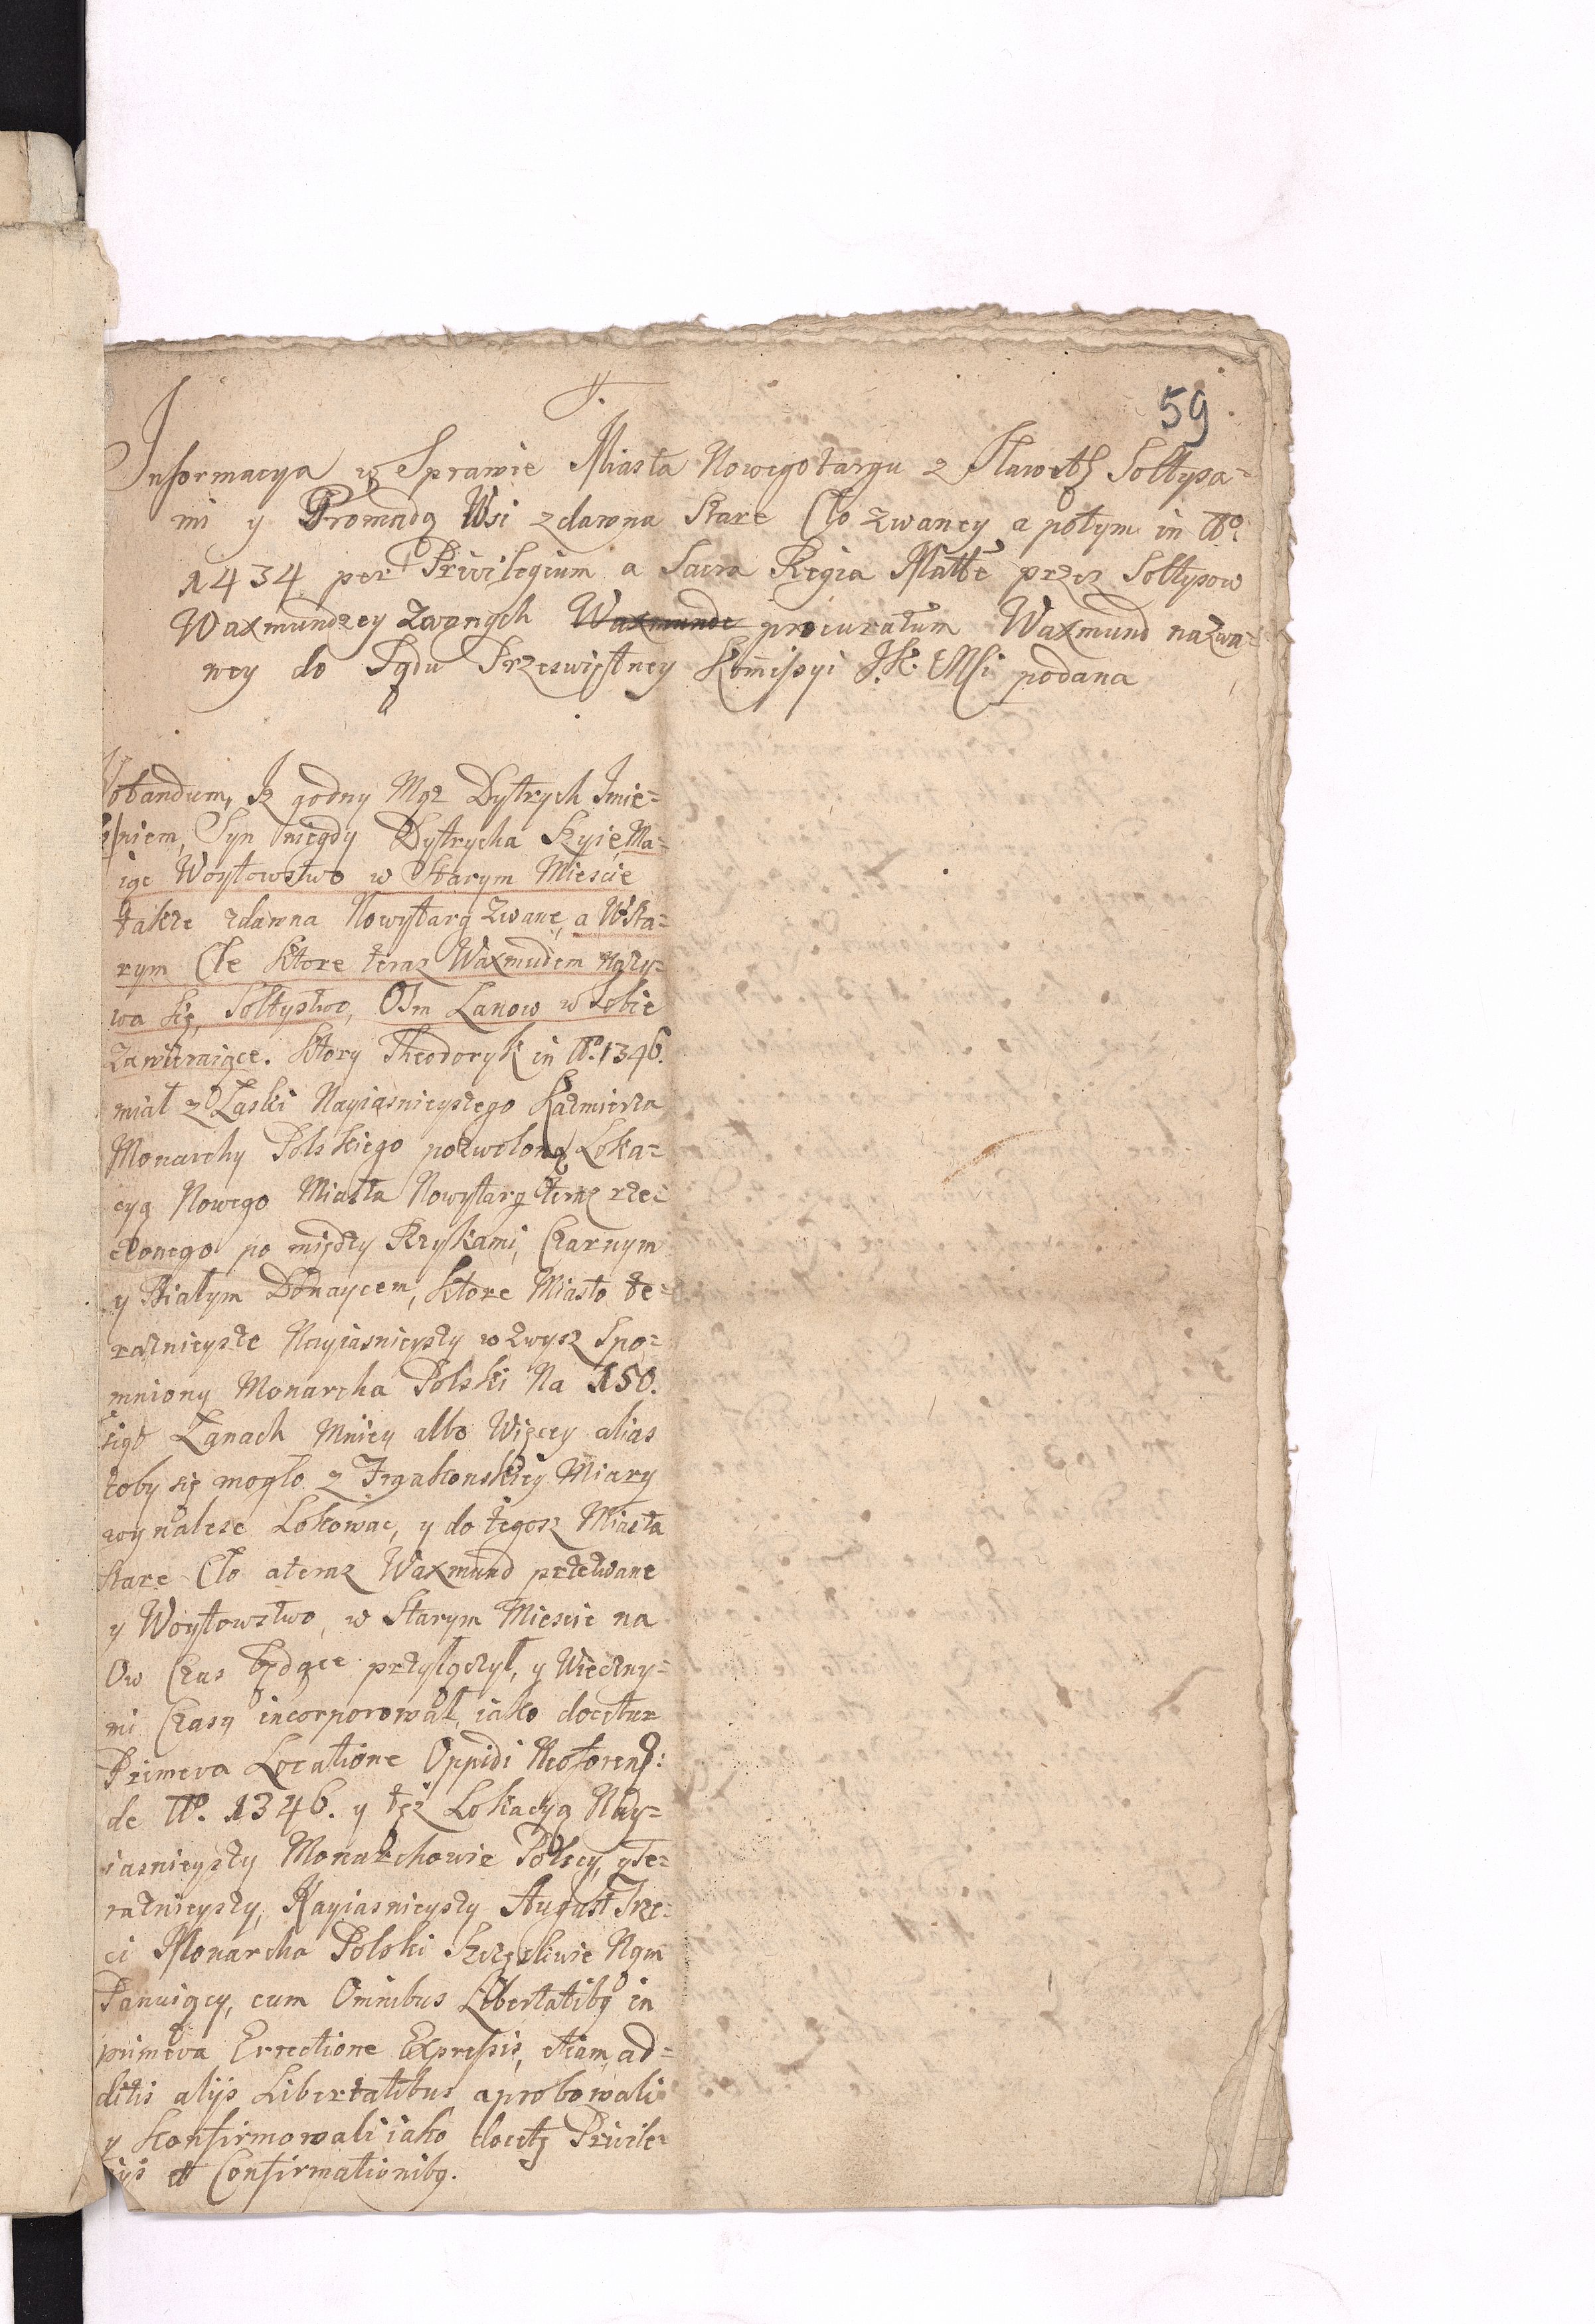 59
Informacya w Sprawie Miasta Nowegotargu z Sławetz Sołtysa=
mi y Gromadą Wsi zdawna Stare Cło zwaney a potym in Ao
1434 per Privilegium a Sacra Regia Matte przez Sołtysow
Waxmundzey zwanych Waxmunde procuratum Waxmund nazwa=
ney do Sądu Przeswiętney Kommissyi J. K. Msci podana
Notandum, Iz godny Mąz Dytrych Imie=
niem, Syn niegdy Dytrycha Szyie, Ma=
iąc Woytowstwo w Starym Miescie
także zdawna Nowytarg zwane, a W Sta=
rym Cle ktore teraz Waxmudem nazy=
wa się, Sołtystwo, Osm Lanow w Sobie
zawieraiące. Ktory Theodoryk in Ao. 1346.
miał z Łaski Nayiasnieyszego Kaźmierza
Monarchy Polskiego pozwoloną Loka=
cyą Nowego Miasta Nowytarg teraz rze=
czonego po między Rzykami, Czarnym
y Białym Dónaycem, ktore Miasto te=
raznieysze Nayiasnieyszy wzwysz Spo=
mniony Monarcha Polski Na 150.
siąt Łanach Mniey albo Więcey alias
coby się mogło z Frąkonskiey Miary
wynalesc Lokowac, y do tegosz Miasta
Stare Cło ateraz Waxmund przezwane
y Woytowstwo, w Starym Miescie na
Ow Czas będące przyłączył, y Wieczny=
mi Czasy incorporował, iako docetur
Primeva Locatione Oppidi Neoforens:
de Ao. 1346. y tęz Lokacyą Nay=
iasnieyszy Monarchowie Polscy, y Te=
raznieyszy, Nayiasnieyszy August Trze=
ci Monarcha Polski Szczęsliwie Nąm
Panuiący, cum Omnibus Libertatibq in
primeva Erectione Expressis, etiam ad=
ditis alijs Libertatibus aprobowali
y Konfirmowali iako docetz Privile=
ijs et Confirmationibq.